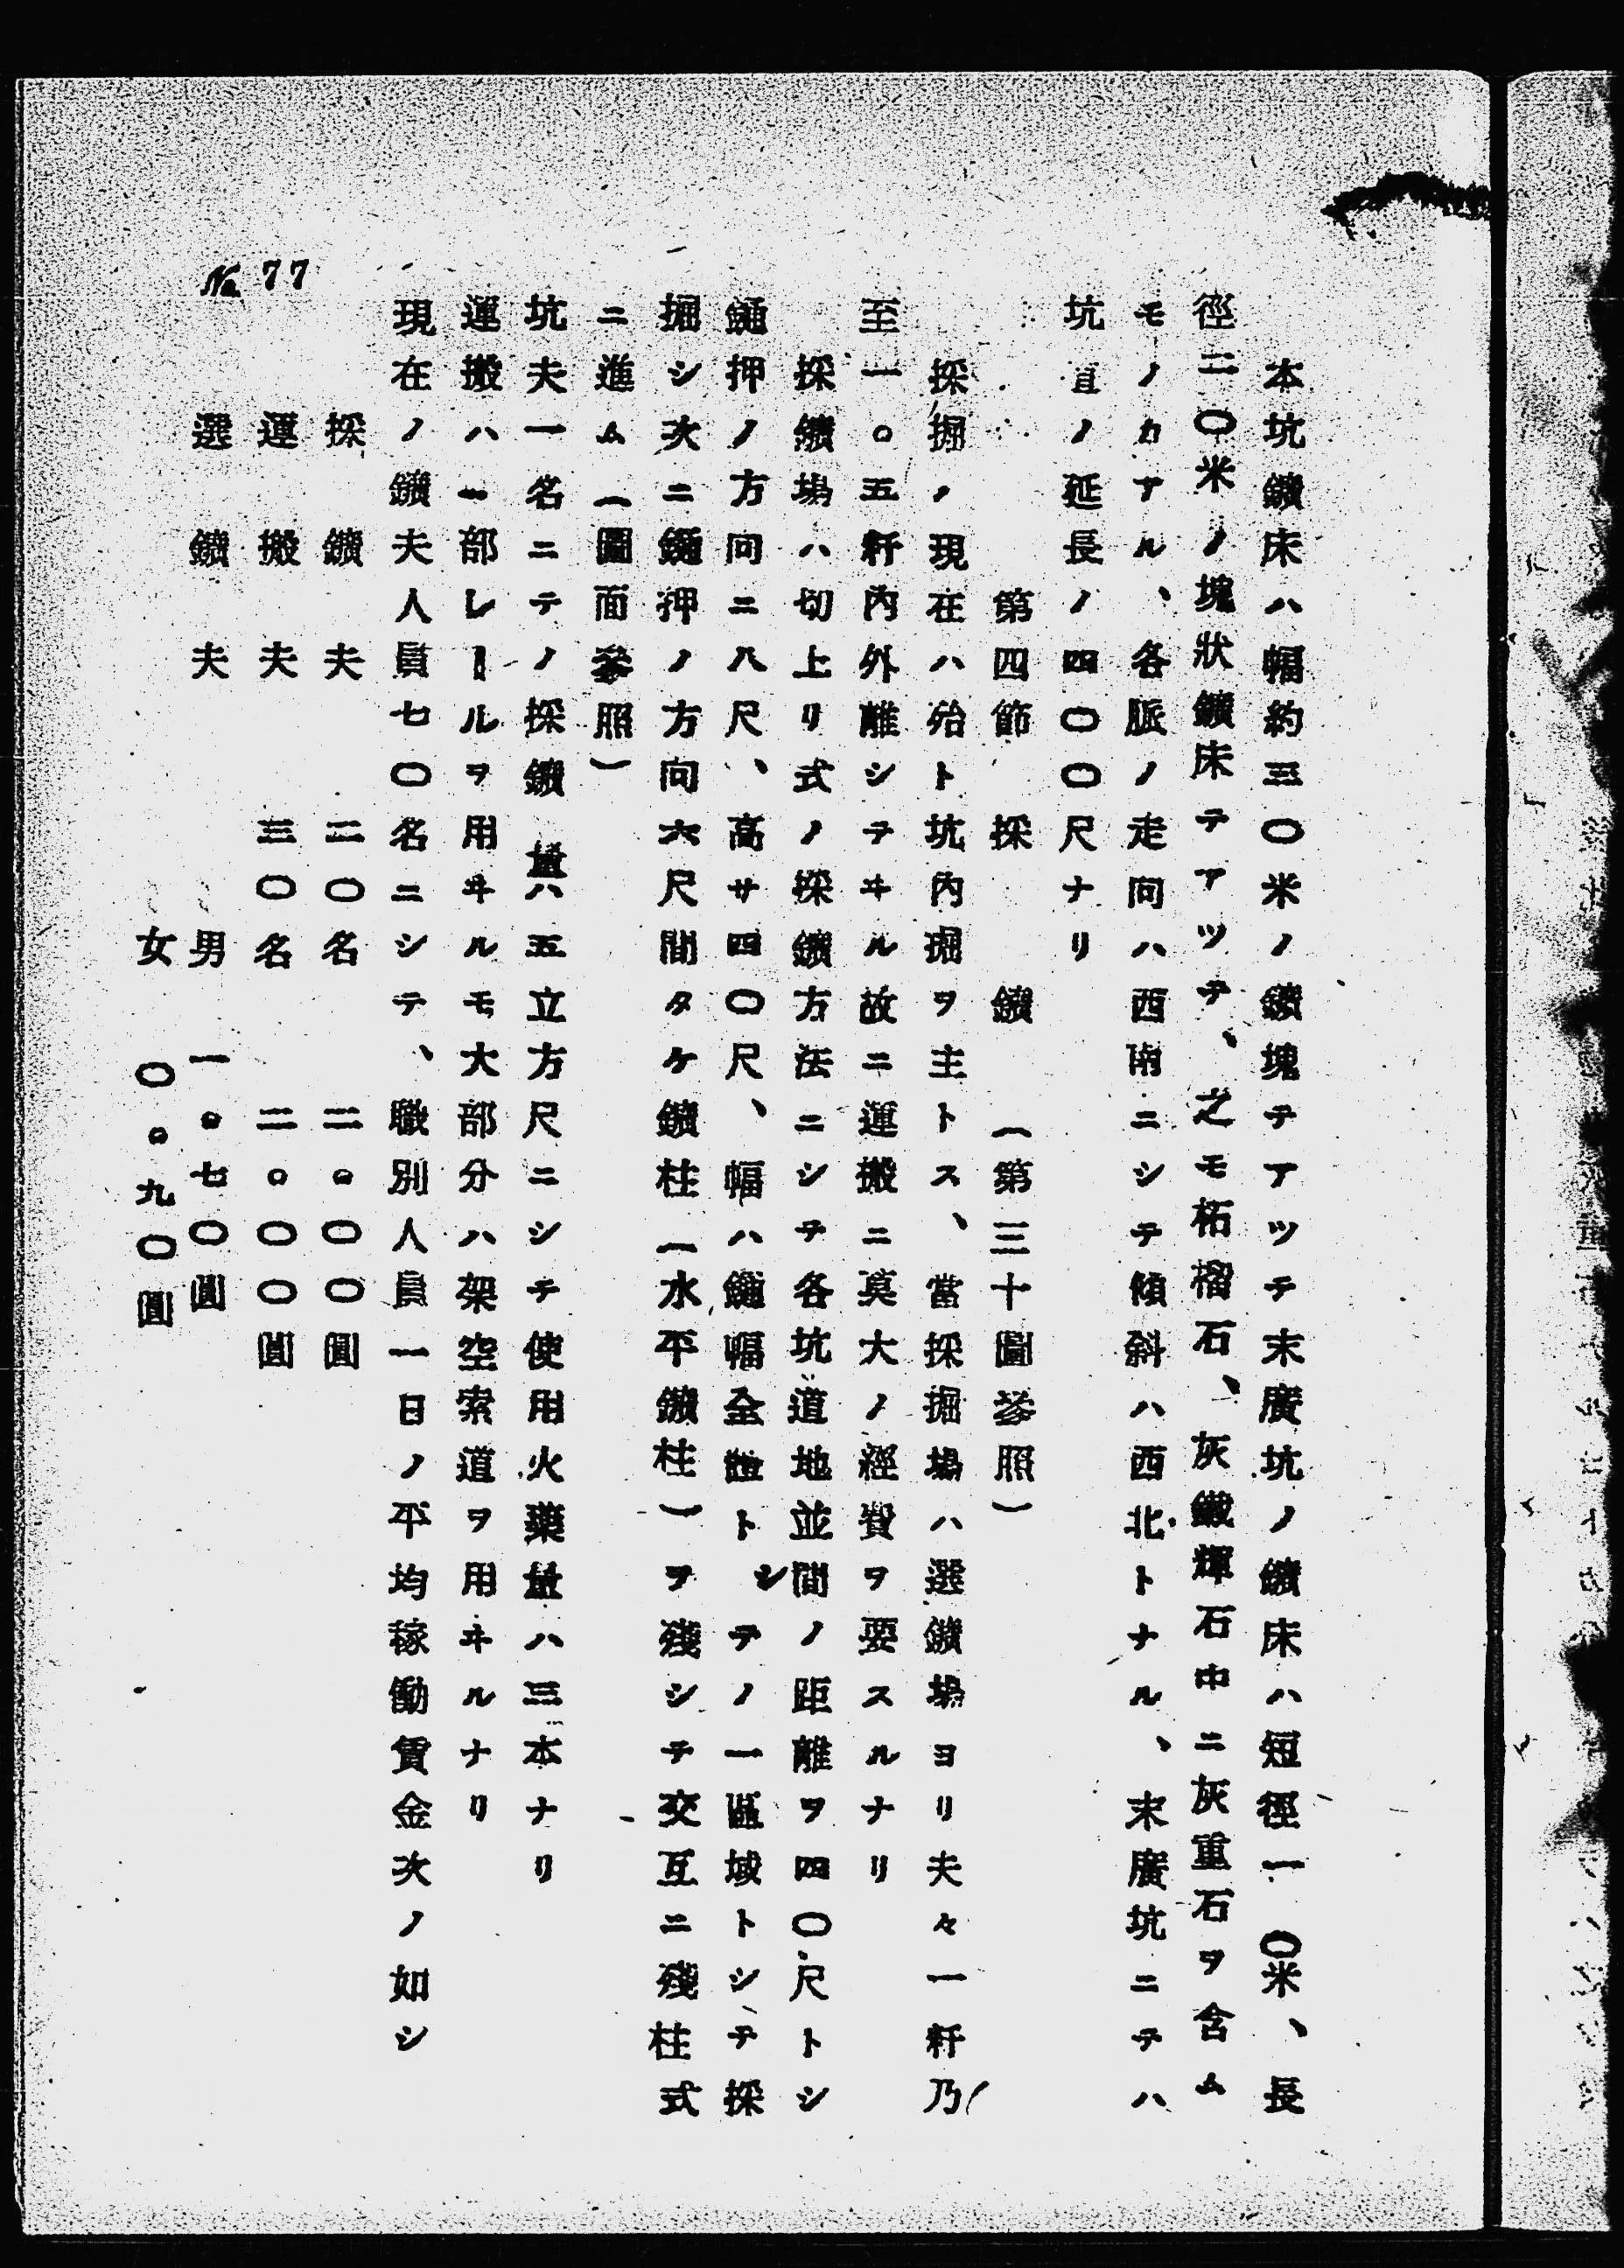 本坑鑛床ハ幅約三〇米ノ鑛塊テアツテ末廣坑ノ鑛床ハ短徑一〇米、長
徑二〇米ノ塊狀鑛床テアツテ、之モ柘榴石、灰鐵輝石中ニ灰重石ヲ含ム
モノカアル、各脈ノ走向ハ西南ニシテ傾斜ハ西北トナル、末廣坑ニテハ
坑直ノ延長ノ四〇〇尺ナリ
第四節 採鑛 (第三十圖參照)
採掘ノ現在ハ殆ト坑內掘ヲ主トス、當採掘場ハ選鑛場ヨリ夫々一粁乃
至一。五粁內外離シテヰル故ニ運搬ニ莫大ノ經費ヲ要スルナリ
採鑛場ハ切上リ式ノ採鑛方法ニシテ各坑道地並間ノ距離ヲ四〇尺トシ
鑛押ノ方向ニ八尺、高サ四〇尺、幅ハ鑛幅全體トシテノ一區域トシテ採
掘シ次ニ鑛押ノ方向六尺間タケ鑛柱(水平鑛柱)ヲ殘シテ交互ニ殘柱式
ニ進ム(圖面參照)
坑夫一名ニテノ採鑛量ハ五立方尺ニシテ使用火藥量ハ三本ナリ
運搬ハ一部レールヲ用ヰルモ大部分ハ架空索道ヲ用ヰルナリ
現在ノ鑛夫人員七〇名ニシテ、職別人員一日ノ平均稼働賃金次ノ如シ
採鑛夫 二〇名 二。〇〇圓
運搬夫 三〇名 二。〇〇圓
選鑛夫 男 一。七〇圓
女 〇。九〇圓
No. 77